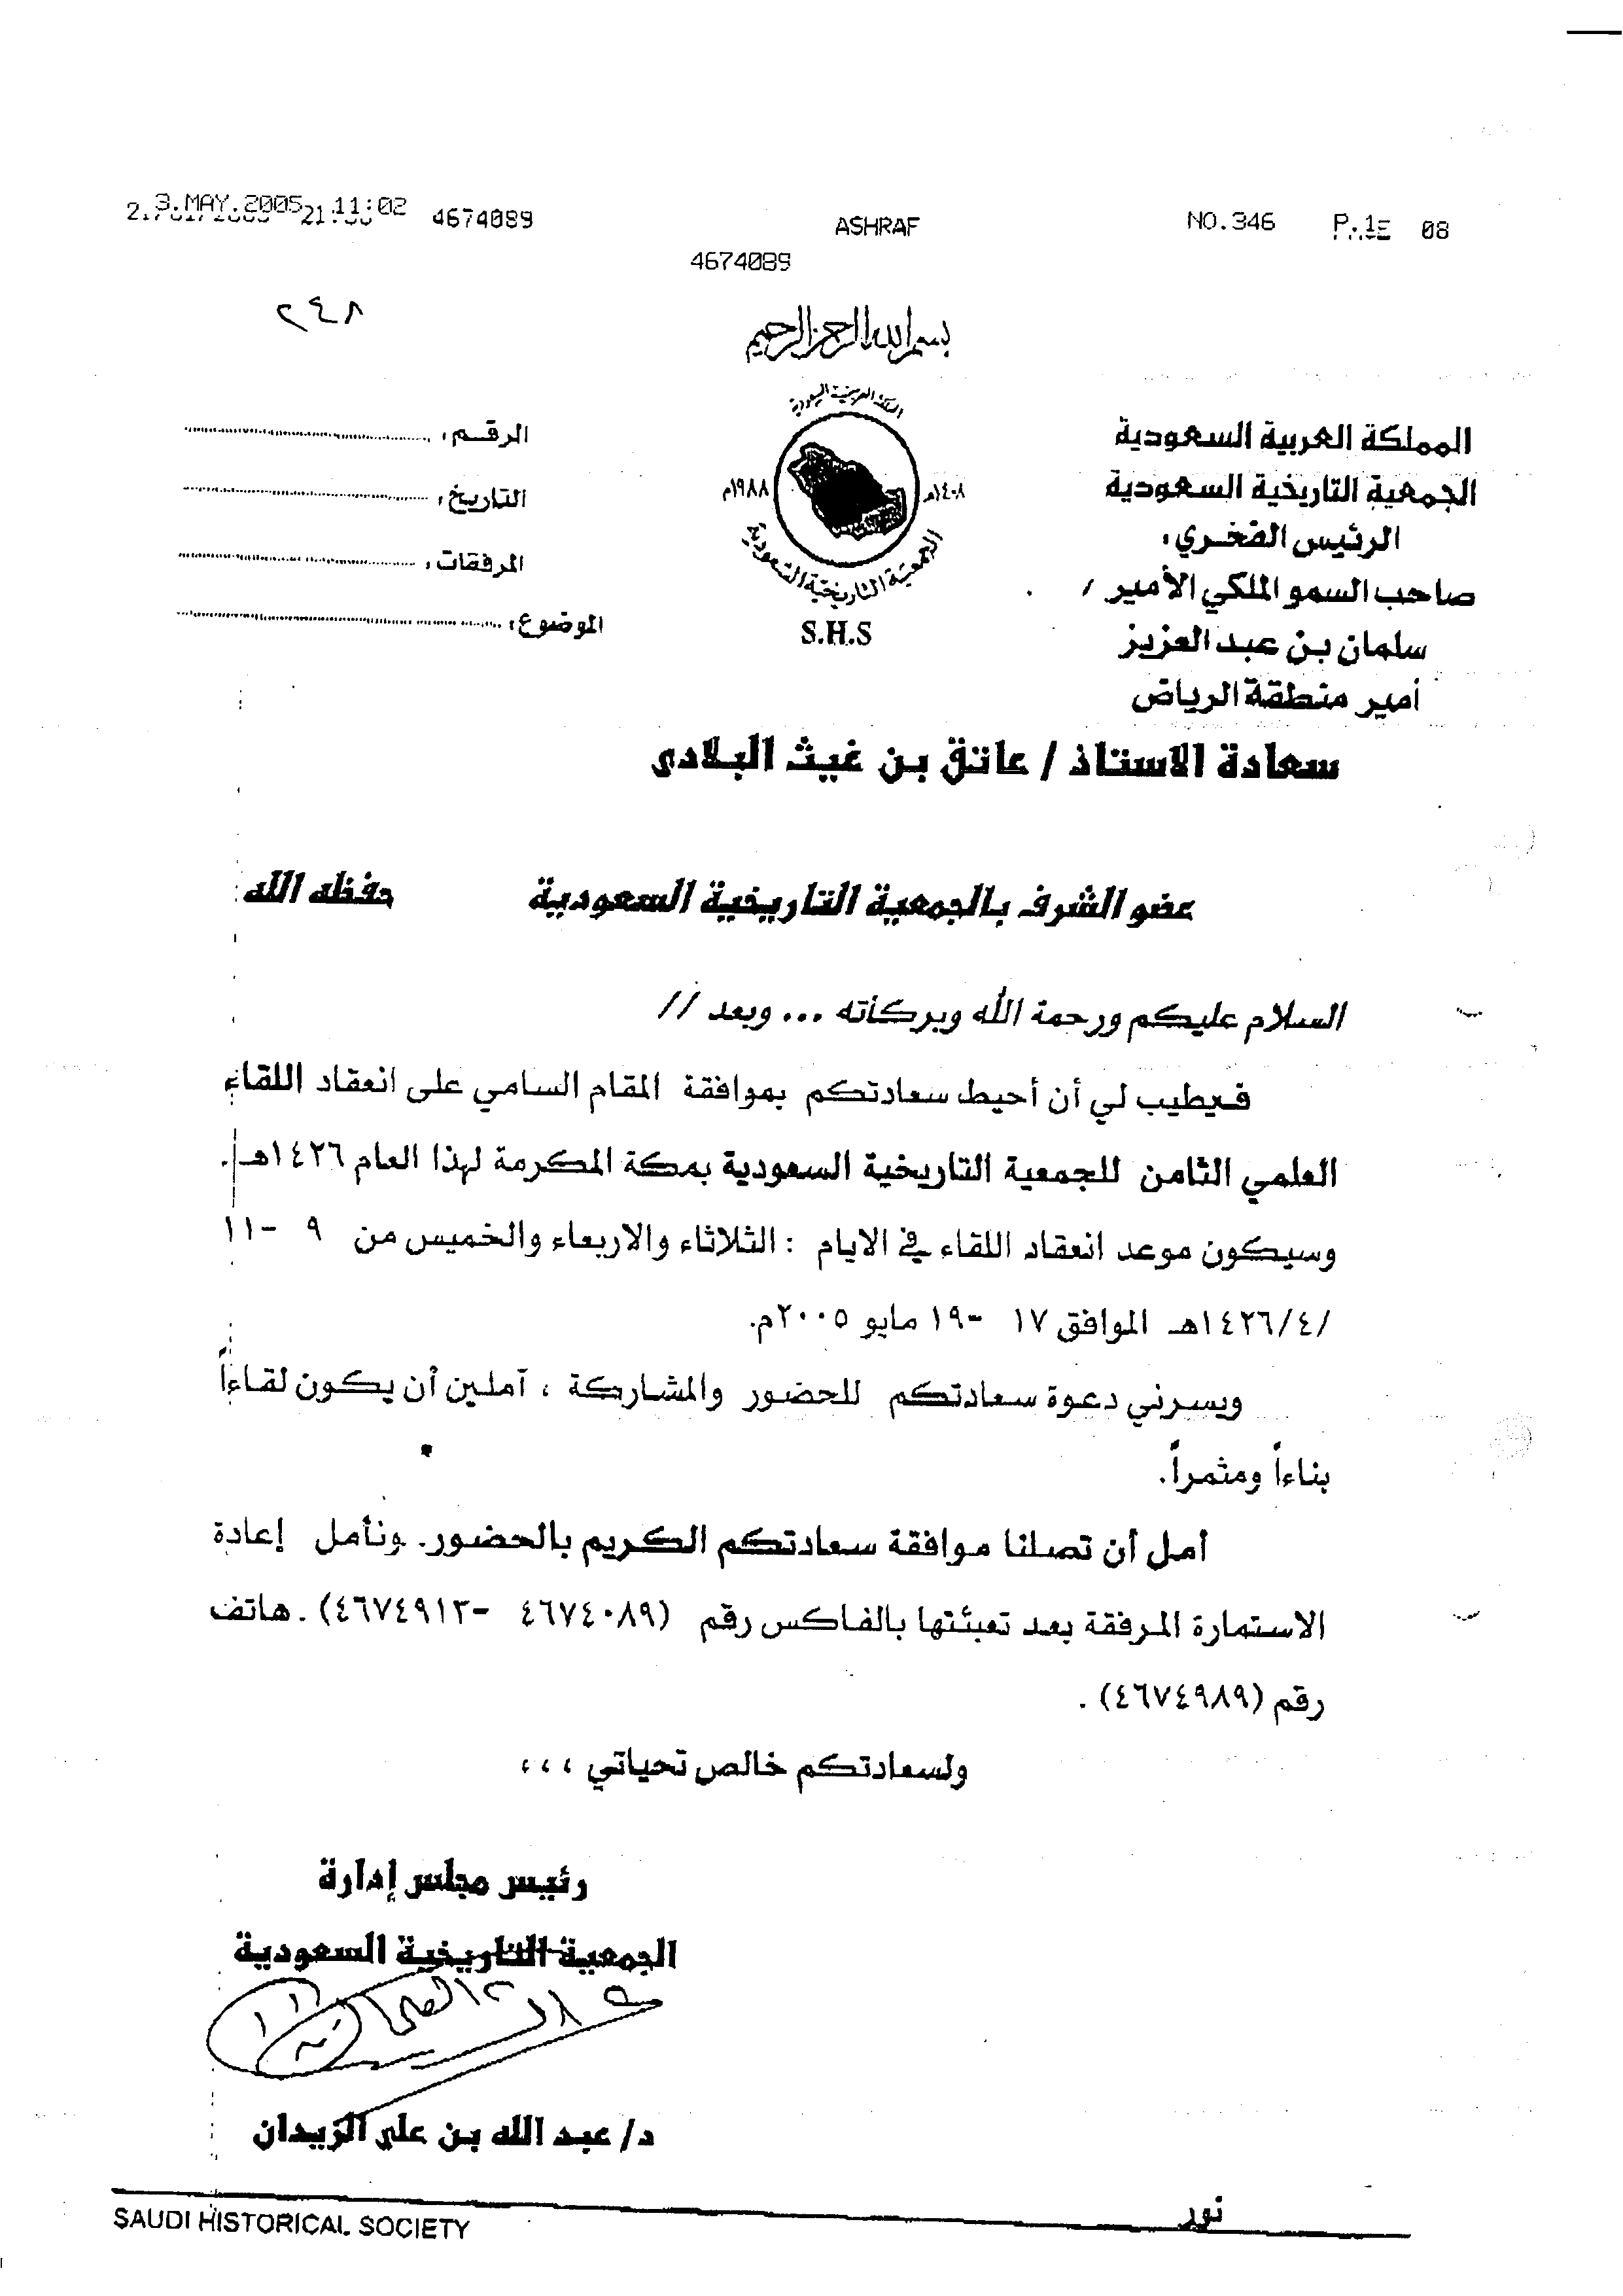 3.MAY.2005 11:02 4674089 ASHRAF NO.346 P.1
4674089
٢٤٨
بسم الله الرحمن الرحيم
المملكة العربية السعودية
الجمعية التاريخية السعودية
الرئيس الفخري،
صاحب السمو الملكي الأمير /
سلمان بن عبد العزيز
أمير منطقة الرياض
المملكة العربية السعودية
١٤٠٨هـ
١٩٨٨م
الجمعية التاريخية السعودية
S.H.S
الرقم:
التاريخ:
المرفقات:
الموضوع:
سعادة الاستاذ / عاتق بن غيث البلادي
عضو الشرف بالجمعية التاريخية السعودية حفظه الله
السلام عليكم ورحمة الله وبركاته ... وبعد //
فيطيب لي أن أحيط سعادتكم بموافقة المقام السامي على انعقاد اللقاء
العلمي الثامن للجمعية التاريخية السعودية بمكة المكرمة لهذا العام ١٤٢٦هـ.
وسيكون موعد انعقاد اللقاء في الايام : الثلاثاء والاربعاء والخميس من ٩ -١١
/١٤٢٦/٤هـ الموافق ١٧ -١٩ مايو ٢٠٠٥م.
ويسرني دعوة سعادتكم للحضور والمشاركة ، آملين أن يكون لقاءاً
بناءاً ومثمراً.
أمل أن تصلنا موافقة سعادتكم الكريم بالحضور. ونأمل إعادة
الاستمارة المرفقة بعد تعبئتها بالفاكس رقم (٤٦٧٤٠٨٩ -٤٦٧٤٩١٣) . هاتف
رقم (٤٦٧٤٩٨٩) .
ولسعادتكم خالص تحياتي ، ، ،
رئيس مجلس إدارة
الجمعية التاريخية السعودية
د/ عبد الله بن علي الزيدان
نور
SAUDI HISTORICAL SOCIETY